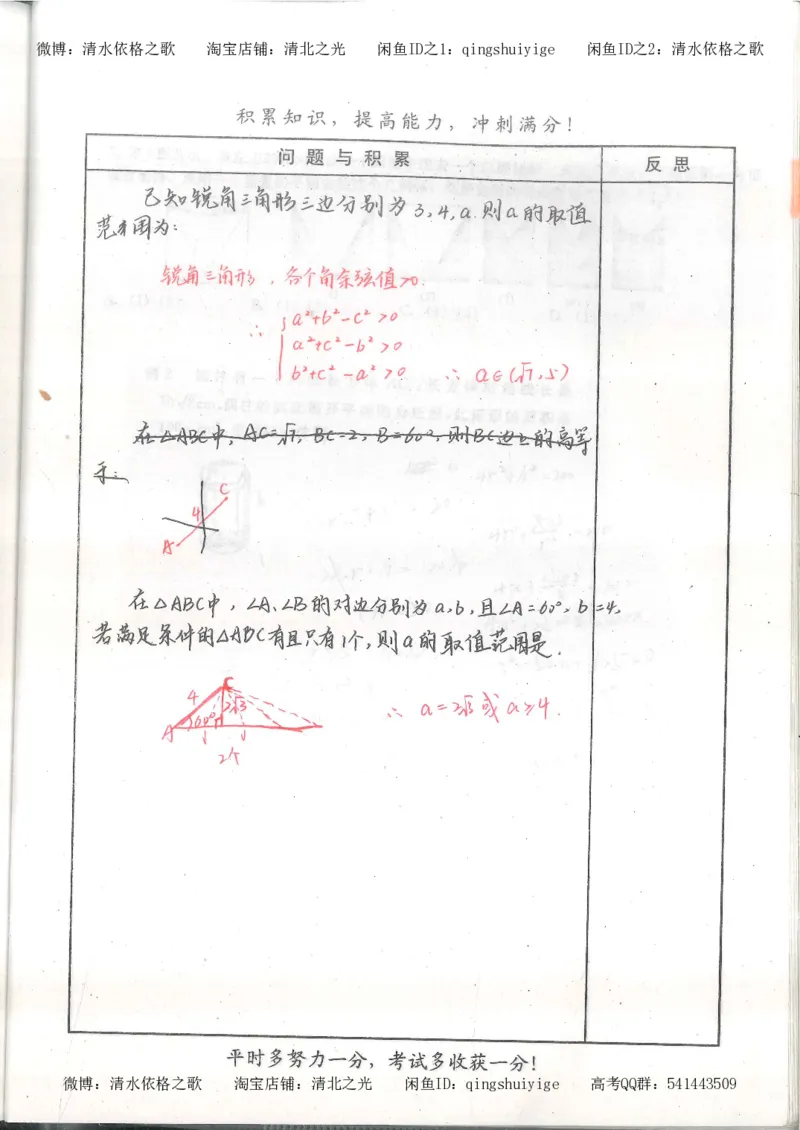 微博：清水依格之歌 淘宝店铺：清北之光 闲鱼ID之1：qingshuiyige 闲鱼ID之2：清水依格之歌
积累知识，提高能力，冲刺满分！
问题与积累 反思
已知锐角三角形三边分别为3,4,a.则a的取值
范围为:
锐角三角形，各个角余弦值>0.
∴ {a²+b²-c²>0
a²+c²-b²>0
b²+c²-a²>0 ∴ a∈(√7,5)
在△ABC中，AC=√7，BC=2，B=60°，则BC边上的高等
于:
C
4
A
在△ABC中，∠A、∠B的对边分别为a,b,且∠A=60°，b=4，
若满足条件的△ABC有且只有1个，则a的取值范围是.
C
4
2√3
60°
A
2个
∴ a=2√3或a≥4.
平时多努力一分，考试多收获一分！
微博：清水依格之歌 淘宝店铺：清北之光 闲鱼ID：qingshuiyige 高考QQ群：541443509